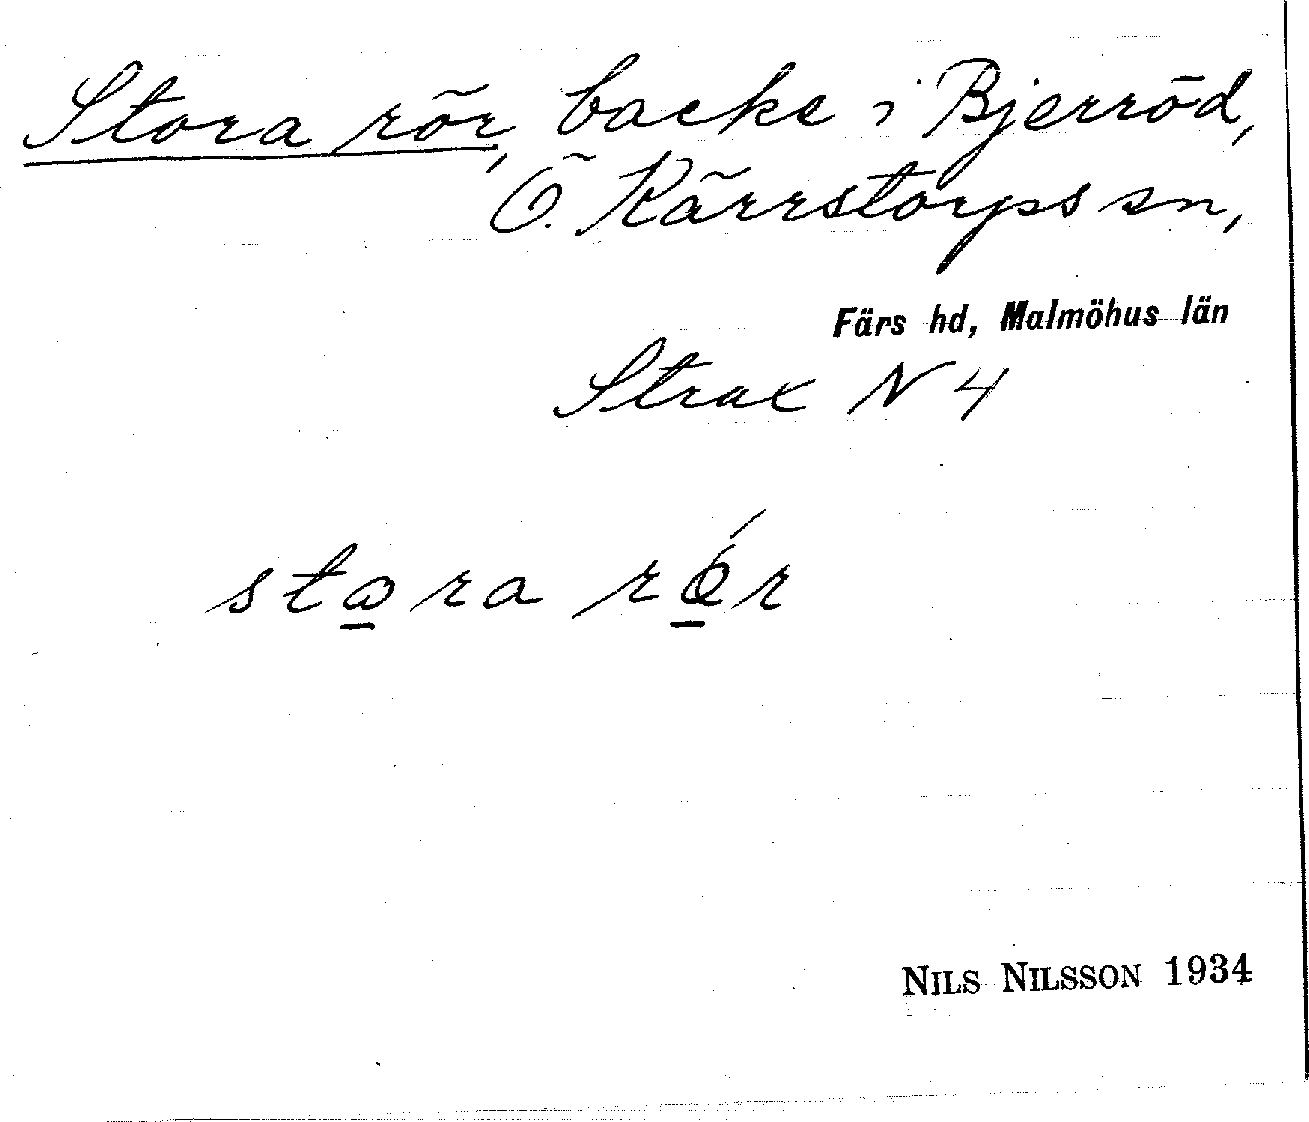 Stora rör, backe i Bjerröd,
Ö. Kärrstorps sn,
Färs hd, Malmöhus län
Strax N 4
stωra rǿr
NILS NILSSON 1934